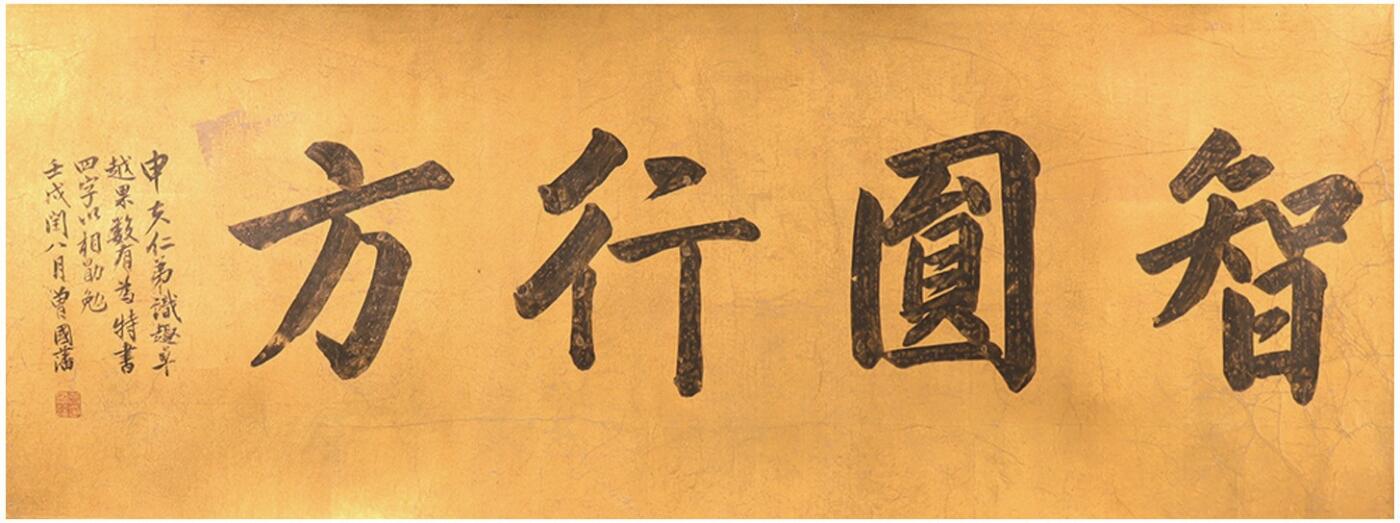 智圓行方
申夫仁弟識趣卓
越果毅有為特書
四字以相勖勉
壬戌閏八月曾國藩